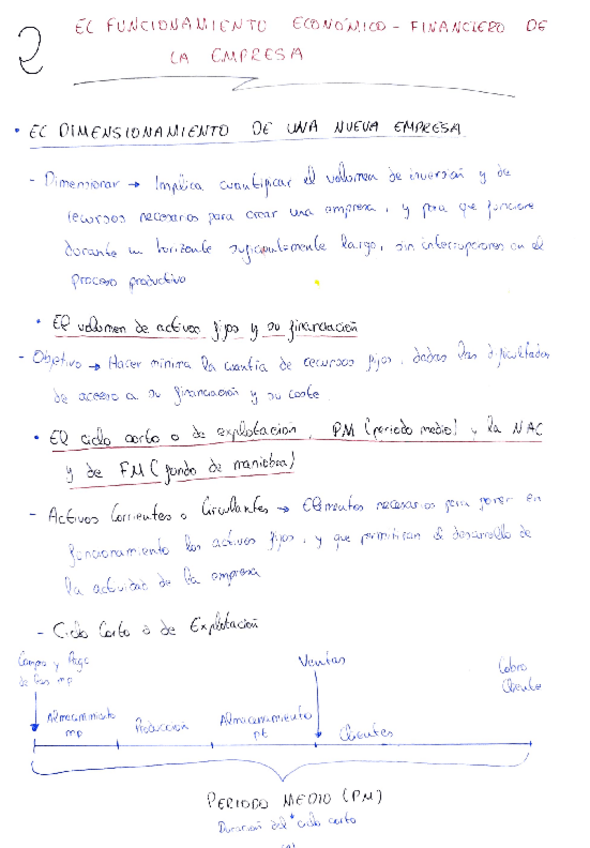 2
EL FUNCIONAMIENTO ECONÓMICO - FINANCIERO DE
LA EMPRESA
• EL DIMENSIONAMIENTO DE UNA NUEVA EMPRESA
- Dimensionar → Implica cuantificar el volumen de inversión y de
recursos necesarios para crear una empresa, y para que funcione
durante un horizonte suficientemente largo, sin interrupciones en el
proceso productivo
• El volumen de activos fijos y su financiación
- Objetivo → Hacer mínima la cuantía de recursos fijos, dadas las dificultades
de acceso a su financiación y su coste.
• El ciclo corto o de explotación, PM (periodo medio) y la NAC
y de FM (fondo de maniobra)
- Activos Corrientes o Circulantes → Elementos necesarios para poner en
funcionamiento los activos fijos, y que permitirán el desarrollo de
la actividad de la empresa
- Ciclo Corto o de Explotación
Compra y Pago
de las mp
Ventas
Cobro
Cliente
Almacenamiento
mp
Producción
Almacenamiento
pt
Clientes
PERIODO MEDIO (PM)
Duración del ciclo corto